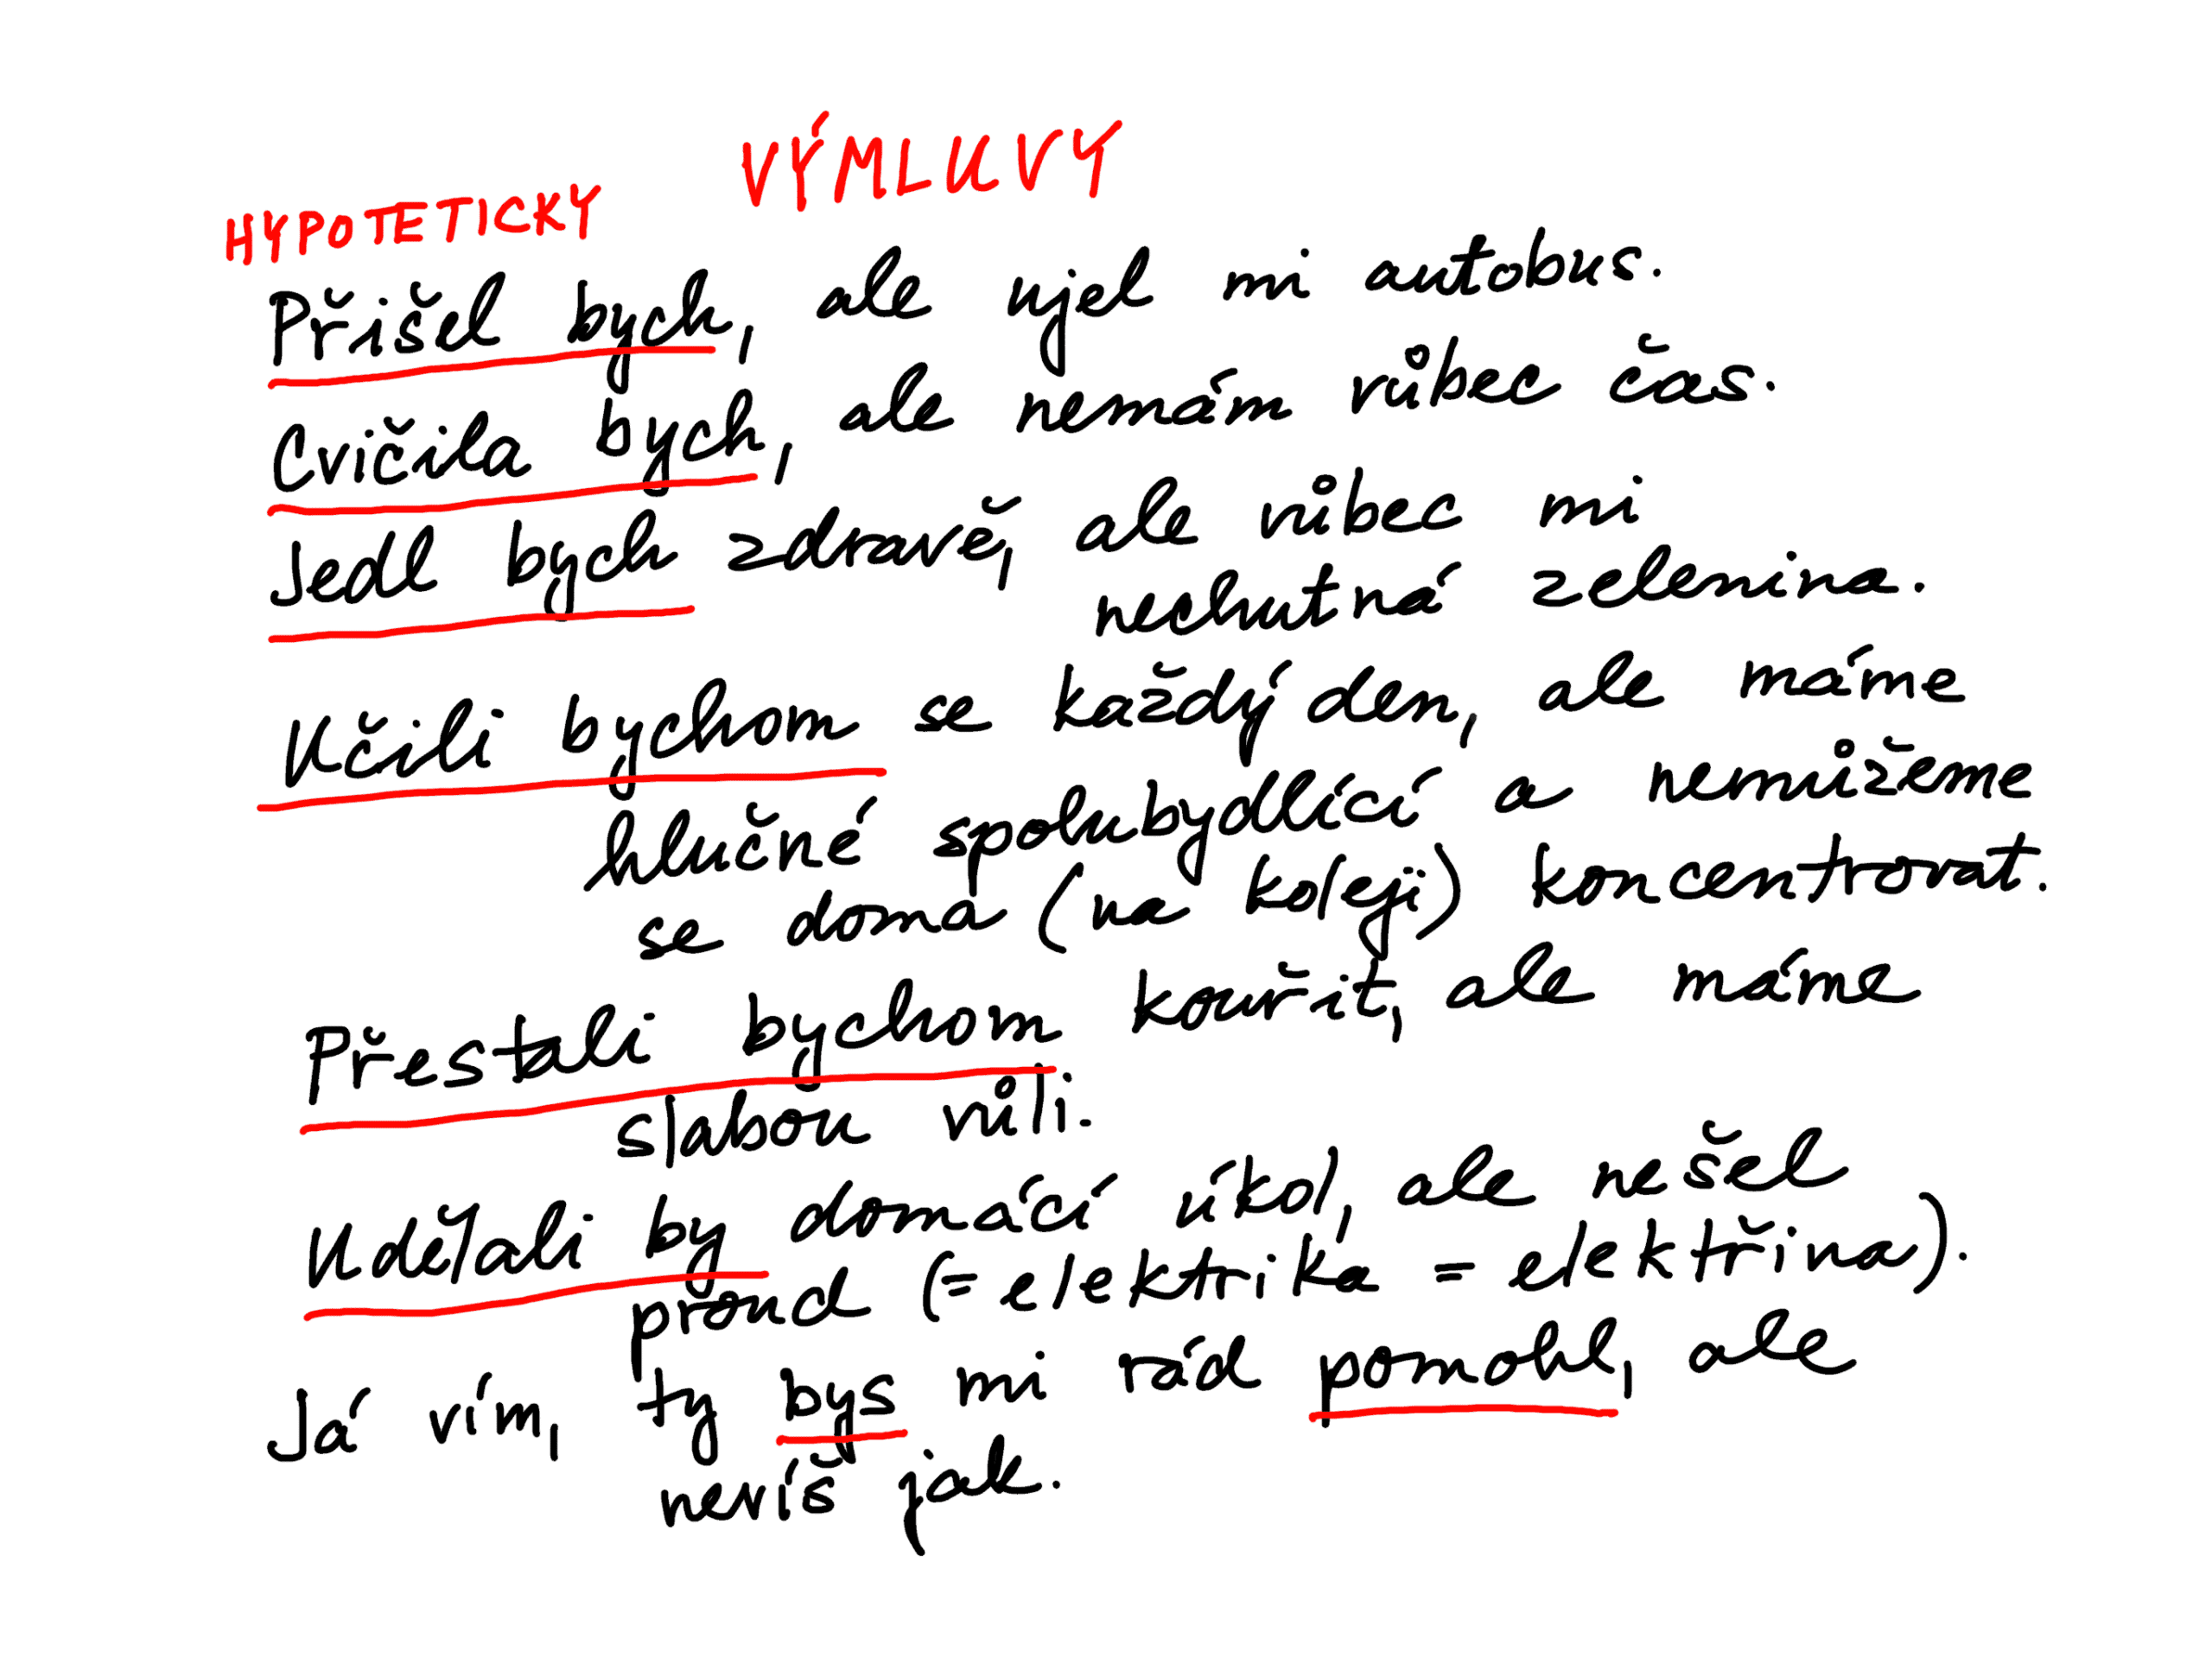 VÝMLUVY
HYPOTETICKY
Přišel bych, ale ujel mi autobus.
Cvičila bych, ale nemám vůbec čas.
Jedl bych zdravě, ale vůbec mi
nechutná zelenina.
Učili bychom se každý den, ale máme
hlučné spolubydlící a nemůžeme
se doma (na koleji) koncentrovat.
Přestali bychom kouřit, ale máme
slabou vůli.
Udělali by domácí úkol, ale nešel
proud (= elektrika = elektřina).
Já vím, ty bys mi rád pomohl, ale
nevíš jak.